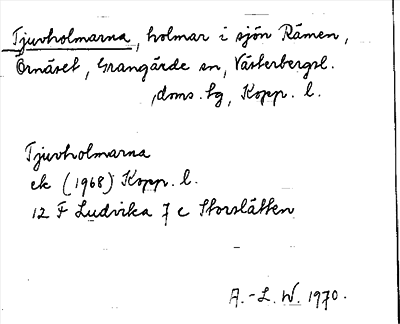 Tjuvholmarna, holmar i sjön Rämen,
Örnäset, Grangärde sn, Västerbergsl.
doms. tg, Kopp. l.
Tjuvholmarna
ek (1968) Kopp. l.
12 F Ludvika 7 c Storslätten
A.-L. W. 1970.